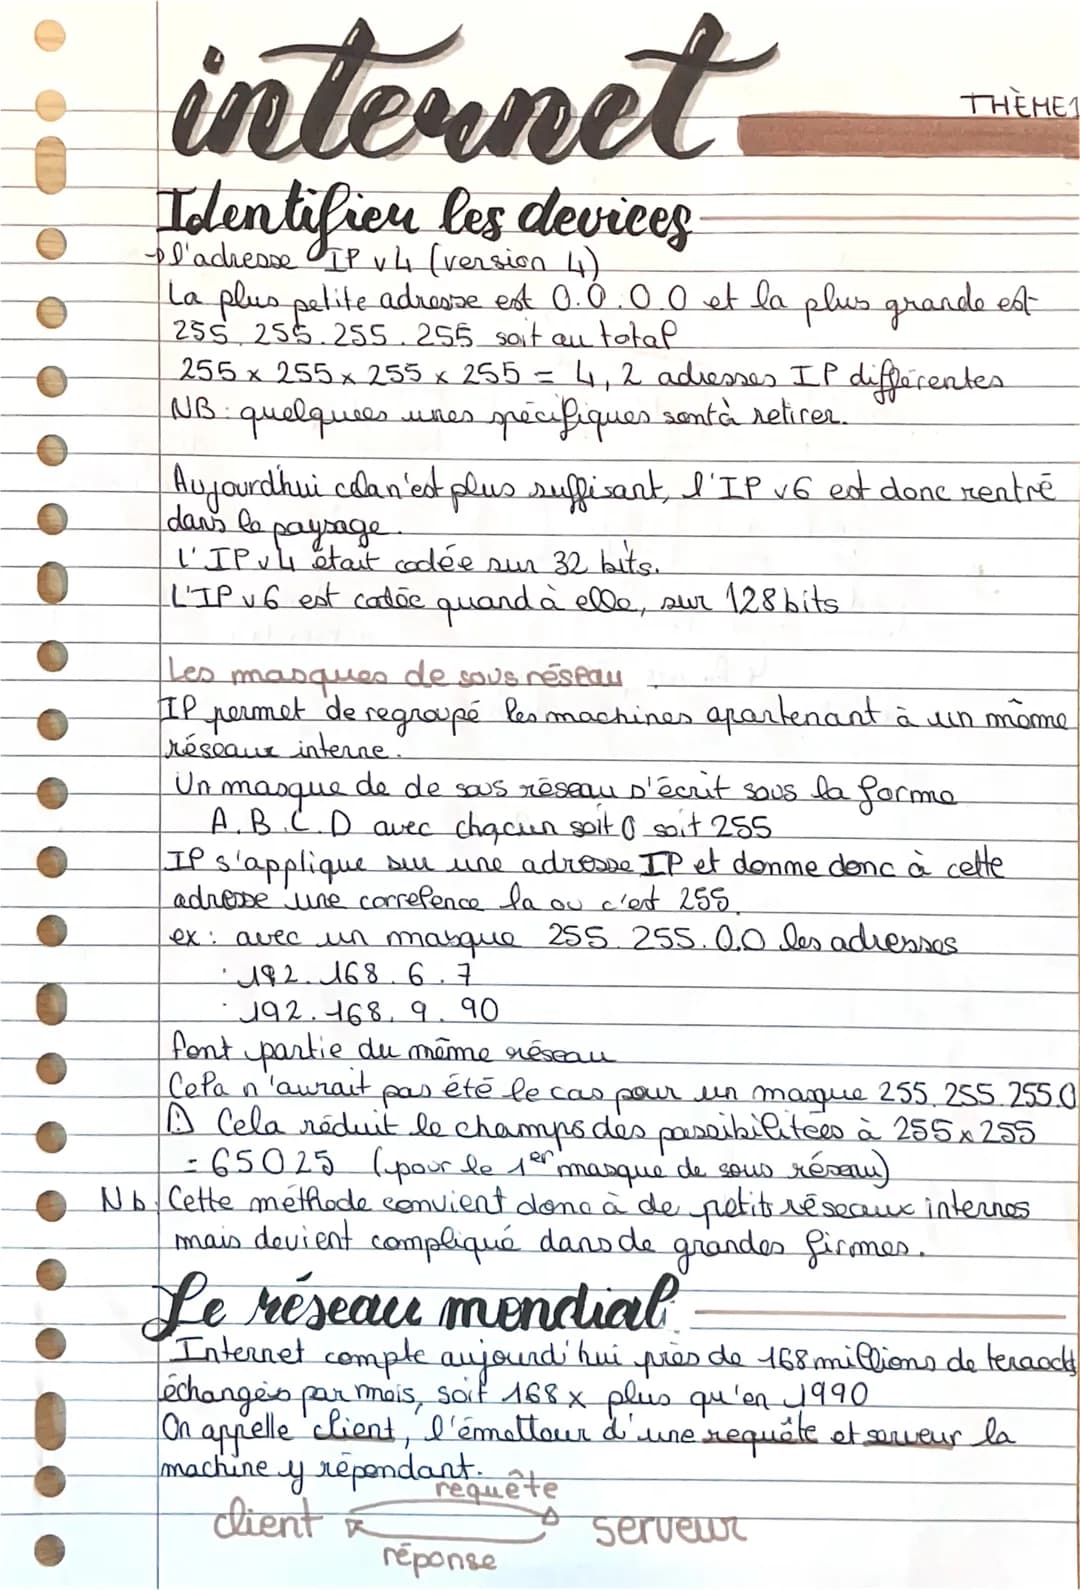 internet
THÈME1
Identifier les devices
→ l'adresse IP v4 (version 4)
La plus petite adresse est 0.0.0.0 et la plus grande est
255.255.255.255 soit au total
255 x 255 x 255 x 255 = 4,2 adresses IP différentes
NB: quelquees unes spécifiques sont à retirer.
Aujourd'hui cela n'est plus suffisant, l'IP v6 est donc rentré
dans le paysage.
L'IP v4 était codée sur 32 bits.
L'IP v6 est codée quand à elle, sur 128 bits
Les masques de sous réseau
IP permet de regroupé les machines apartenant à un même
réseaux interne.
Un masque de de sous réseau s'écrit sous la forme
A.B.C.D avec chacun soit 0 soit 255
IP s'applique sur une adresse IP et donne donc à cette
adresse une correfence la ou c'est 255.
ex: avec un masque 255.255.0.0 les adresses
· 192.168.6.7
· 192.168.9.90
font partie du même réseau
Cela n'aurait pas été le cas pour un masque 255.255.255.0
⚠ Cela réduit le champs des possibilitées à 255x255
= 65025 (pour le 1er masque de sous réseau)
Nb: Cette méthode convient donc à de petits réseaux internes
mais devient compliqué dans de grandes firmes.
Le réseau mondial
Internet compte aujourd'hui près de 168 millions de teraoct
échangés par mois, soit 168 x plus qu'en 1990
On appelle client, l'émetteur d'une requête et serveur la
machine y répondant.
requête
client serveur
réponse